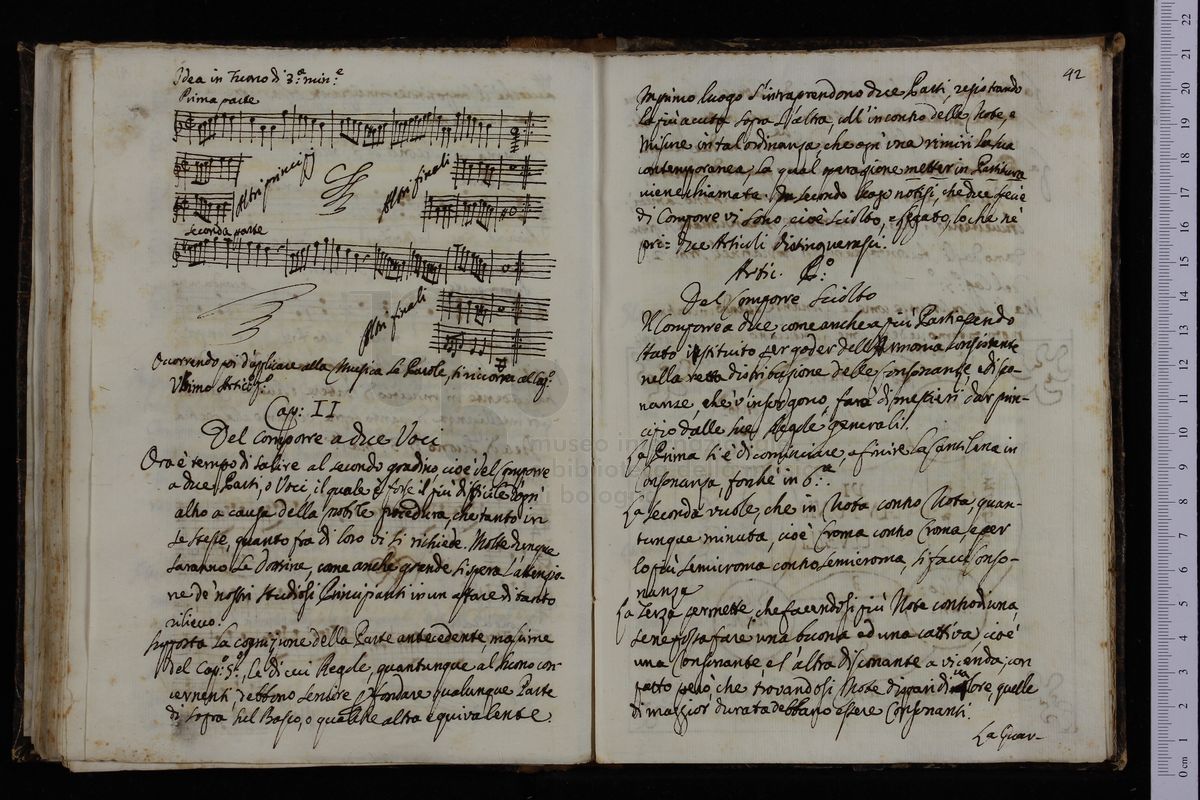 Idea in Tuono di 3.a min.e
Prima parte
Altri principj
Altri finali
Seconda parte
Altri finali
Occorrendo poi d'applicare alla Musica le Parole, si ricorra al Cap.o
Ultimo Artic.o
Cap: II
Del Comporre a due Voci
Ora è tempo di salire al secondo gradino cioè del Comporre
a due Parti, o Voci, il quale è forse il più difficile d'ogn'
altro a causa della nobile procedura, che tanto in
se stesse, quanto fra di loro vi si richiede. Molte dunque
saranno le Dottrine, come anche grande si spera l'attenzio-
ne de' nostri studiosi Principianti in un affare di tanto
rilievo.
Supposta la cognizione della Parte antecedente, massime
del Cap.o 5.o, le di cui Regole, quantunque al Tuono con-
cernenti, debbono servire per fondare qualunque Parte
di sopra sul Basso, o qualche altra equivalente
42
In primo luogo s'intraprendono due Parti, registrando
la più acuta sopra l'altra, coll'incontro delle Note, e
Misure in tal ordinanza che ogn'una rimiri la sua
contemporanea, la qual operazione metter in Partitura
viene chiamata. In secondo luogo notisi, che due specie
di Comporre vi sono, cioè Sciolto, e Legato, lo che ne'
pri= due Articoli distinguerassi.
Artic. P.o
Del Comporre Sciolto
Il Comporre a due come anche a più Parti essendo
stato instituito per goder dell'Armonia consistente
nella retta distribuzione delle Consonanze e disso-
nanze, che v'insorgono, farà di mestieri dar prin-
cipio dalle sue Regole generali.
La Prima si è di cominciare, e finire la Cantilena in
Consonanza, forchè in 6.a
La seconda vuole, che in Nota contro Nota, quan-
tunque minuta, cioè Croma contro Croma, e per
lo più Semicroma contro Semicroma, si facci Conso-
nanza
La Terza permette, che facendosi più Note contro d'una,
se ne possa fare una buona ed una cattiva, cioè
una Consonante e l'altra dissonante a vicenda; con
patto però, che trovandosi Note dispari di valore, quelle
di maggior durata debbano essere Consonanti.
La Quar-
museo internazionale
biblioteca della musica
di bologna